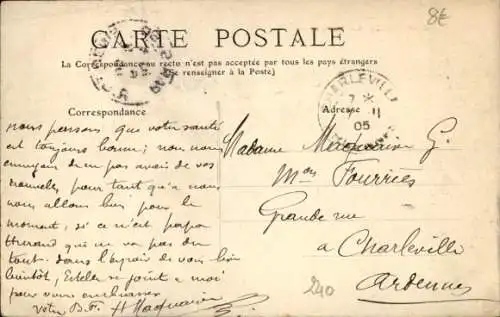 8€
CARTE POSTALE
La Correspondance au recto n'est pas acceptée par tous les pays étrangers
(Se renseigner à la Poste)
Correspondance
Adresse
CHARLEVILLE
7 * 11
05
nous pensons que votre santé
est toujours bonne ; nous nous
ennuyons de n pas avoir de vos
nouvelles pour tant qu'à nous
nous allons bien pour le
moment, si ce n'est papa
qui ne va pas du
tout. dans l'espoir de vous lire
bientôt, se joint a moi
pour vous embrasser
votre B. F. H Macquarier
Madame Macquarier G.
Mon Fourriès
Grande rue
a Charleville
Ardennes
240